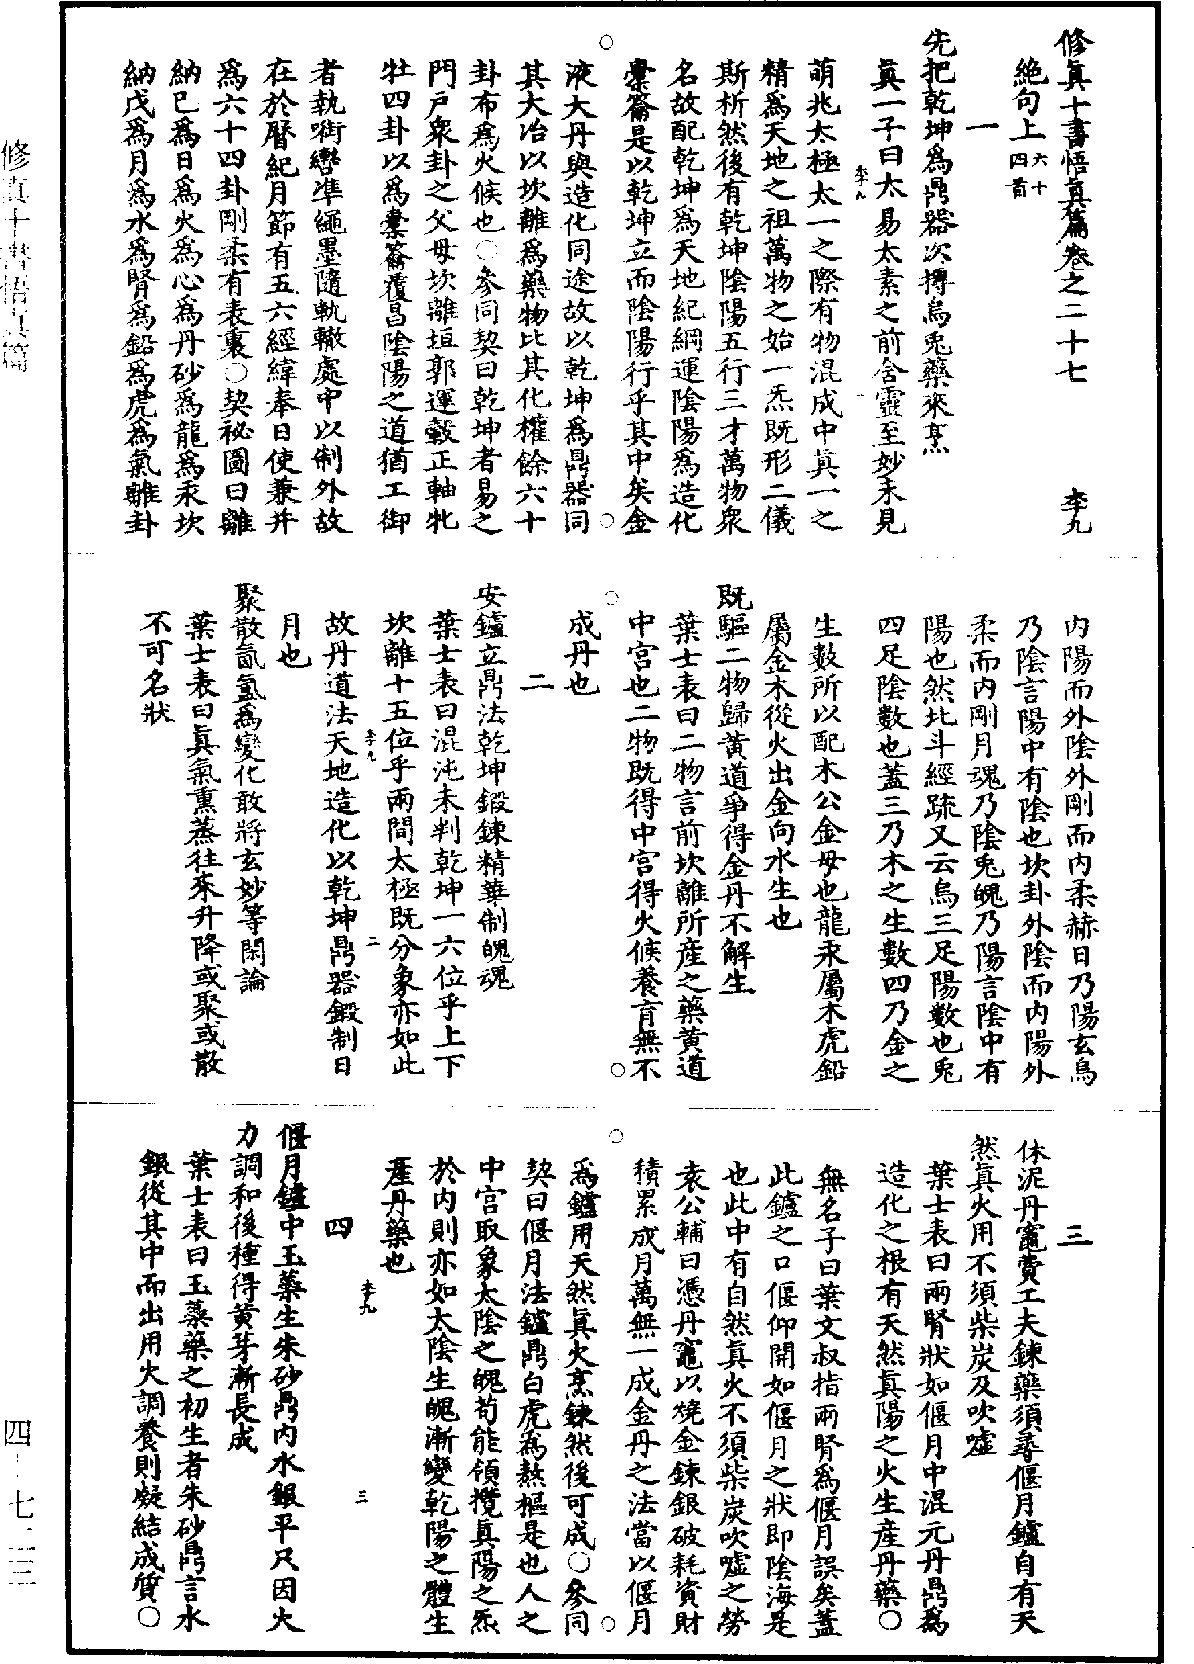 修真十書悟真篇卷之二十七　李九
絶句上六十四首
一
先把乾坤爲鼎器次搏烏兎藥來烹
真一子曰太易太素之前含靈至妙未見
萌兆太極太一之際有物混成中真一之
精爲天地之祖萬物之始一炁既形二儀
斯析然後有乾坤陰陽五行三才萬物衆
名故配乾坤爲天地紀綱運陰陽爲造化
橐籥是以乾坤立而陰陽行乎其中矣金
液大丹與造化同途故以乾坤爲鼎器同
其大冶以坎離爲藥物比其化權餘六十
卦布爲火候也○參同契曰乾坤者易之
門戶衆卦之父母坎離垣郭運轂正軸牝
牡四卦以爲橐籥覆冒陰陽之道猶工御
者執銜轡準繩墨隨軌轍處中以制外故
在於曆紀月節有五六經緯奉日使兼并
爲六十四卦剛柔有表裏○契祕圖曰離
納己爲日爲火爲心爲丹砂爲龍爲汞坎
納戊爲月爲水爲腎爲鉛爲虎爲氣離卦
內陽而外陰外剛而內柔赫日乃陽玄烏
乃陰言陽中有陰也坎卦外陰而內陽外
柔而內剛月魂乃陰兎魄乃陽言陰中有
陽也然北斗經疏又云烏三足陽數也兎
四足陰數也蓋三乃木之生數四乃金之
生數所以配木公金母也龍汞屬木虎鉛
屬金木從火出金向水生也
既驅二物歸黃道爭得金丹不解生
葉士表曰二物言前坎離所産之藥黃道
中宮也二物既得中宮得火候養育無不
成丹也
二
安鑪立鼎法乾坤鍛鍊精華制魄魂
葉士表曰混沌未判乾坤一六位乎上下
坎離十五位乎兩間太極既分象亦如此
故丹道法天地造化以乾坤鼎器鍛制日
月也
聚散氤氳爲變化敢將玄妙等閑論
葉士表曰真氣熏蒸往來升降或聚或散
不可名狀
三
休泥丹竈費工夫鍊藥須尋偃月鑪自有天
然真火用不須柴炭及吹噓
葉士表曰兩腎狀如偃月中混元丹鼎爲
造化之根有天然真陽之火生産丹藥○
無名子曰葉文叔指兩腎爲偃月誤矣蓋
此鑪之口偃仰開如偃月之狀即陰海是
也此中有自然真火不須柴炭吹噓之勞
袁公輔曰憑丹竈以燒金鍊銀破耗資財
積累成月萬無一成金丹之法當以偃月
爲鑪用天然真火烹鍊然後可成○參同
契曰偃月法鑪鼎白虎爲熬樞是也人之
中宮取象太陰之魄苟能領攬真陽之炁
於內則亦如太陰生魄漸變乾陽之體生
産丹藥也
四
偃月鑪中玉蘂生朱砂鼎內水銀平只因火
力調和後種得黃芽漸長成
葉士表曰玉蘂藥之初生者朱砂鼎言水
銀從其中而出用火調養則凝結成質○
李九
李九　二
李九　三
修真十書悟真篇
四—七一三